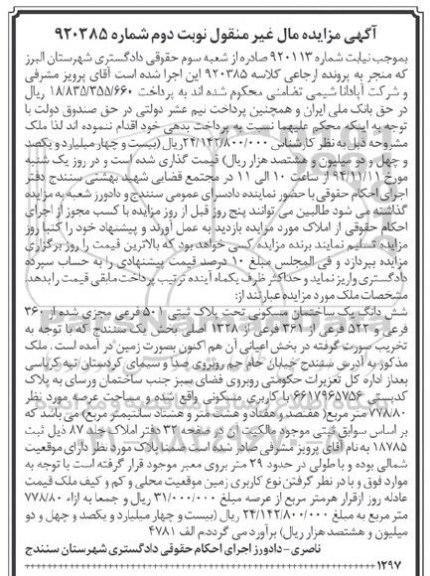 آگهی مزایده مال غیر منقول نوبت دوم شماره ۹۲۰۳۸۵
بموجب نیابت شماره ۹۲۰۱۱۳ صادره از شعبه سوم حقوقی دادگستری شهرستان البرز
که منجر به پرونده ارجاعی کلاسه ۹۲۰۳۸۵ این اجرا شده است آقای پرویز مشرفی
و شرکت آپادانا شیمی تضامنی محکوم شده اند به پرداخت ۱۸/۸۳۵/۳۵۵/۶۶۰ ریال
در حق بانک ملی ایران و همچنین پرداخت نیم عشر دولتی در حق صندوق دولت با
توجه به اینکه محکم علیهما نسبت به پرداخت بدهی خود اقدام ننموده اند لذا ملک
مشروحه ذیل به نظر کارشناس ۲۴/۱۴۲/۸۰۰/۰۰۰ ریال (بیست و چهار میلیارد و یکصد
و چهل و دو میلیون و هشتصد هزار ریال) قیمت گذاری شده است و در روز یک شنبه
مورخ ۹۴/۱۱/۱۱ از ساعت ۱۰ الی ۱۱ در مجتمع قضایی شهید بهشتی سنندج دفتر
اجرای احکام حقوقی با حضور نماینده دادسرای عمومی سنندج و دادورز شعبه به مزایده
گذاشته می شود طالبین می توانند پنج روز قبل از روز مزایده با کسب مجوز از اجرای
احکام حقوقی از املاک مورد مزایده بازدید به عمل آورند و پیشنهاد خود را کتبا روز
مزایده تسلیم نمایند برنده مزایده کسی خواهد بود که بالاترین قیمت را روز برگزاری
مزایده بپردازد و فی المجلس مبلغ ۱۰ درصد قیمت پیشنهادی را به حساب سپرده
دادگستری واریز نماید و حداکثر ظرف یکماه آینده ترتیب پرداخت مابقی قیمت را بدهد.
مشخصات ملک مورد مزایده عبارتند از:
شش دانگ یک ساختمان مسکونی تحت پلاک ثبتی ۵۰۱ فرعی مجزی شده از ۳۶۰
فرعی و ۵۲۲ فرعی از ۳۶۱ فرعی از ۱۳۲۸ اصلی بخش یک سنندج که با توجه به
تخریب صورت گرفته در بخش اعیانی آن هم اکنون بصورت زمین در آمده است. ملک
مذکور به آدرس سنندج خیابان جام جم روبروی صدا و سیمای کردستان تپه کرباسی
بعداز اداره کل تعزیرات حکومتی روبروی فضای سبز جنب ساختمان ورسای به پلاک
کدپستی ۶۶۱۷۹۶۵۷۵۶ با کاربری مسکونی واقع شده و مساحت عرصه مورد نظر
۷۷۸/۸۰ متر مربع ( هفتصد و هفتاد و هشت متر و هشتاد سانتیمتر مربع) می باشد که
بر اساس سوابق ثبتی موجود مالکیت آن در صفحه ۳۲ دفتر املاک جلد ۸۷ ذیل ثبت
۱۸۷۸۵ به نام آقای پرویز مشرفی صادر شده است ضمنا پلاک مورد نظر دارای موقعیت
شمالی بوده و با طولی در حدود ۲۹ متر بروی معبر موجود قرار گرفته است با توجه به
موارد فوق و با در نظر گرفتن نوع کاربری زمین موقعیت محلی و کم و کیف ملک قیمت
عادله روز ازقرار هرمتر مربع از عرصه مبلغ ۳۱/۰۰۰/۰۰۰ ریال و جمعا به ازاء ۷۷۸/۸۰
متر مربع به مبلغ ۲۴/۱۴۲/۸۰۰/۰۰۰ ریال (بیست و چهار میلیارد و یکصد و چهل و دو
میلیون و هشتصد هزار ریال) برآورد می گردد.م الف ۴۷۸۱
ناصری - دادورز اجرای احکام حقوقی دادگستری شهرستان سنندج
۱۲۹۷